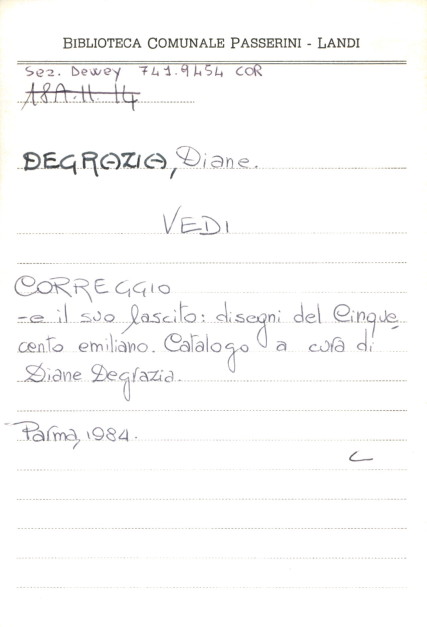 BIBLIOTECA COMUNALE PASSERINI - LANDI
Sez. Dewey 741.9454 COR
18A.11.14
DEGRAZIA, Diane.
VEDI
CORREGGIO
-e il suo lascito: disegni del Cinque_
cento emiliano. Catalogo a cura di
Diane Degrazia.
Parma, 1984.
C